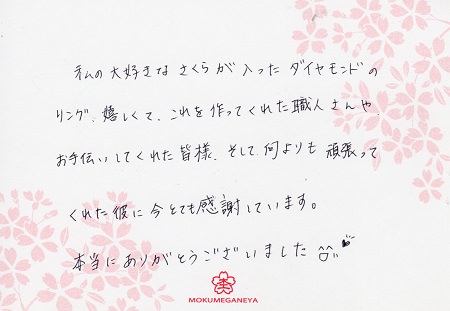 私の大好きなさくらが入ったダイヤモンドの
リング、嬉しくて、これを作ってくれた職人さんや、
お手伝いしてくれた皆様、そして何よりも頑張って
くれた彼に今とても感謝しています。
本当にありがとうございました
MOKUMEGANEYA